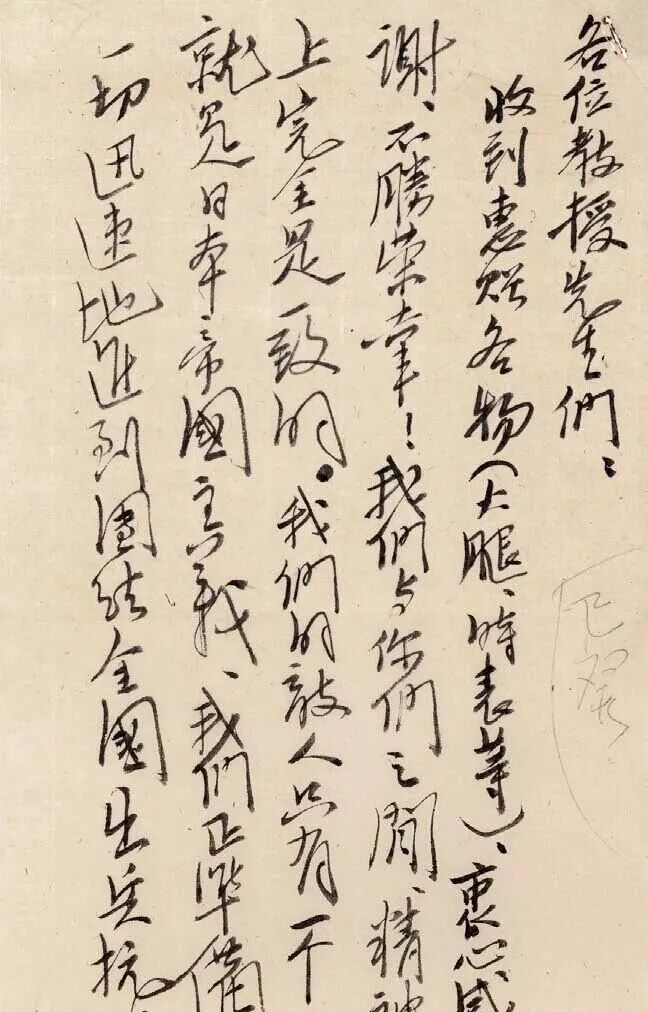 各位教授先生們：
收到惠贈各物（火腿、時表等）、衷心感
謝、不勝榮幸！我們与你們之間、精神
上完全是一致的。我們的敵人只有一个
就是日本帝國主義、我們正準備
一切迅速地進到團結全國出兵抗
已覆